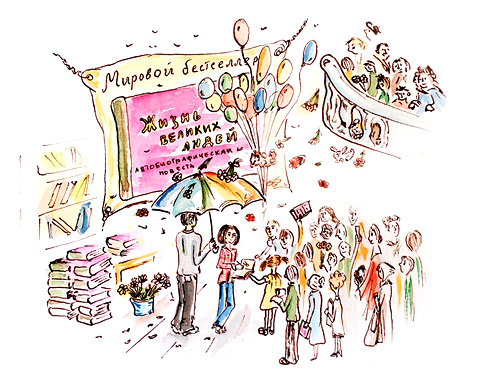 Мировой бестселлер
Жизнь
великих
людей
автобиографическая
повесть